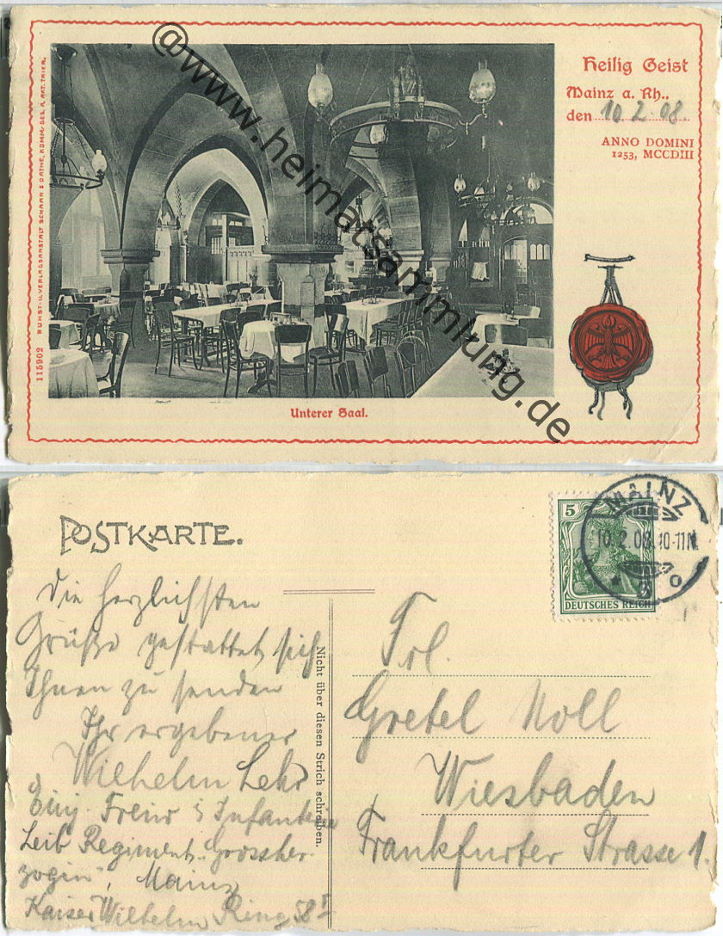 Heilig Geist
Mainz a. Rh..
den 10 2 08
ANNO DOMINI
1253, MCCDIII
115902 KUNST- U. VERLAGSANSTALT SCHAAR & DATHE, KOMM.-GES. A. AKT. TRIER.
Unterer Saal.
@www.heimatsammlung.de
POSTKARTE.
5
DEUTSCHES REICH
MAINZ
10.2.08.10-11N.
Die herzlichsten
Grüße gestattet sich
Ihnen zu senden
Ihr ergebener
Wilhelm Lehr
Einj. Freiw Infanterie
Leib Regiment „Grossher
zogin", Mainz
Kaiser Wilhelm Ring 58
Nicht über diesen Strich schreiben.
Frl.
Gretel Noll
Wiesbaden
Frankfurter Strasse 1.